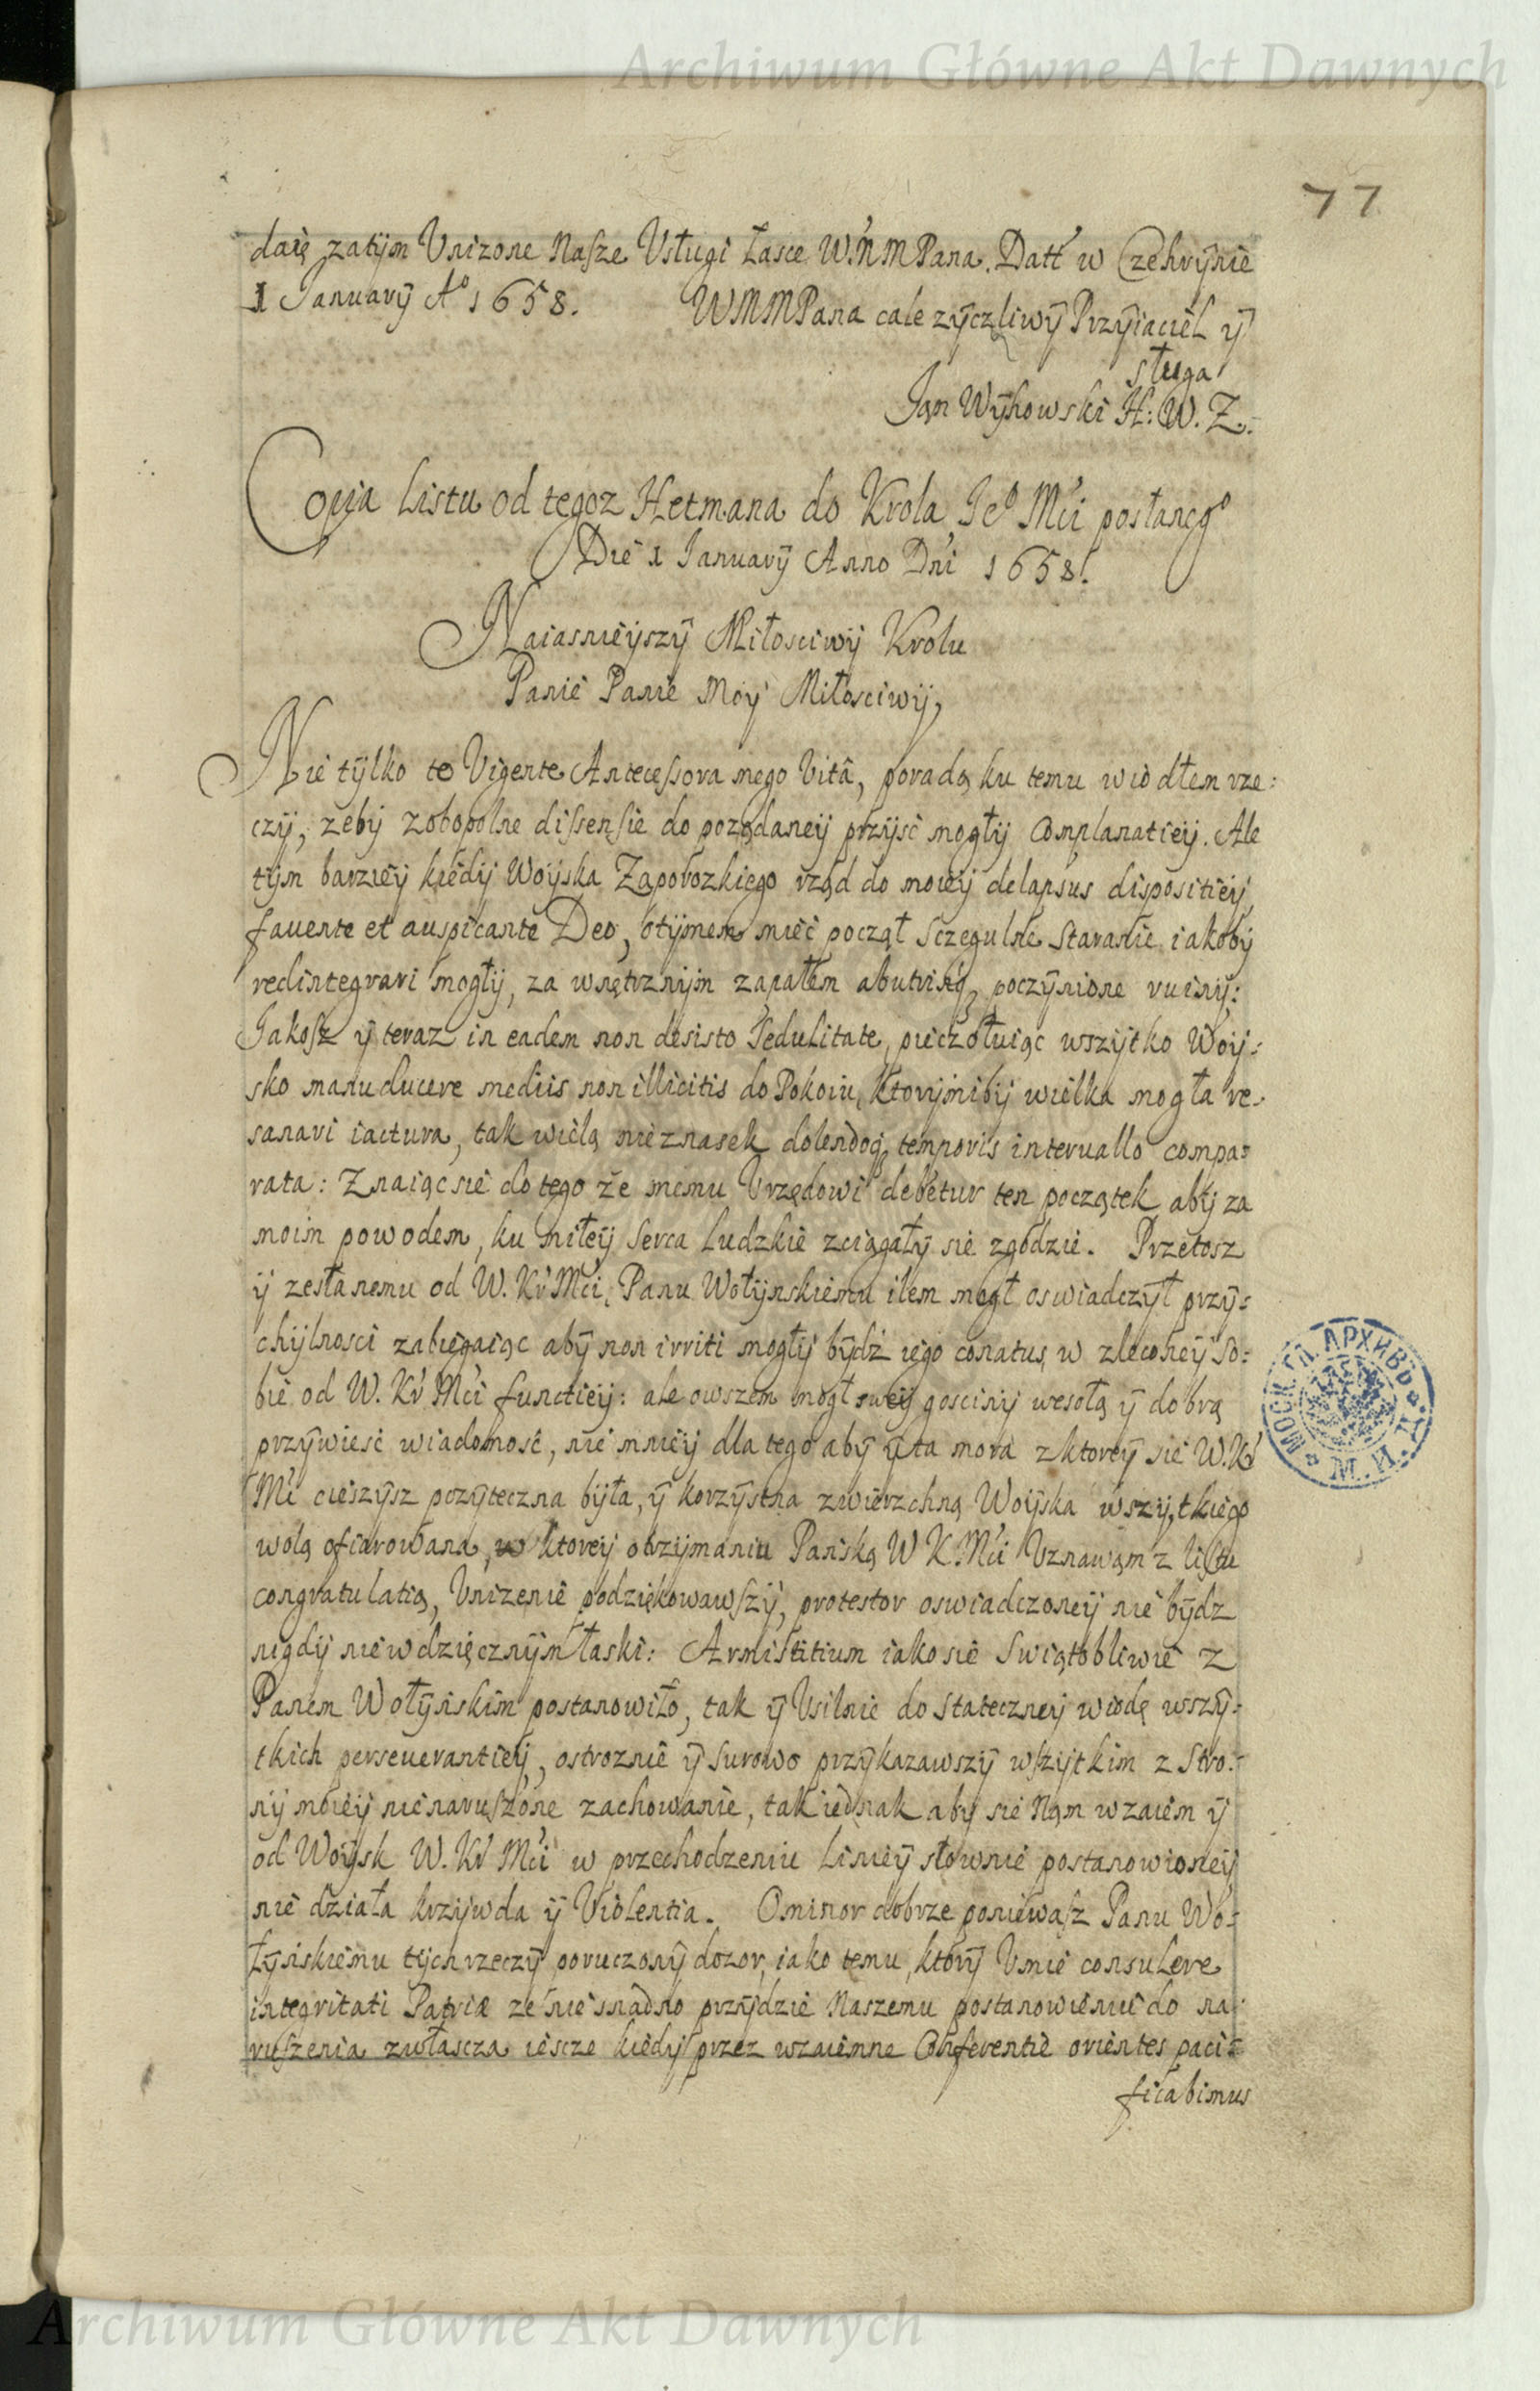 Archiwum Główne Akt Dawnych
77
daię zatym Vnizone Nasze Vsługi Łasce W.N M Pana. Datt w Czehrynie
1 January Aº 1658. WMMPana cale zyczliwy Przyiaciel y
sługa
Jan Wyhowski H: W. Z.
Copia Listu od tegoz Hetmana do Krola Jeº Mći posłanegº
Die 1 January Anno Dni 1658.
Naiasnieyszy Miłosciwy Krolu
Panie Panie Moy Miłosciwy,
Nie tylko to Vigente Antecessora mego Vitâ, poradą ku temu wiodłem rze:
czy, zeby zobopolne dissensie do poządaney przyisć mogły Complanatiey. Ale
tym barziey kiedy Woyska Zaporozkiego rząd do moiey delapsus dispositiey,
fauente et auspicante Deo, otymem mieć począł sczegulne staranie iakoby
redintegrari mogły, za wnętrznym zapałem abutviną poczynione ruiny:
Jakosz y teraz in eadem non desisto sedulitate, pieczołuiąc wszytko Woy:
sko manuducere mediis non illicitis do Pokoiu, ktorymiby wielka mogła re
sanari iactura, tak wielą nieznasek dolendoq temporis interuallo compa:
rata: Znaiąc sie do tego że memu Vrzędowi debetur ten początek aby za
moim powodem, ku miłey serca ludzkie zciągały sie zgodzie. Przetosz
y zesłanemu od W. Kr Mći, Panu Wołynskiemu ilem mogł oswiadczył przy:
chylnosci zabiegaiąc aby non irriti mogły bydź iego conatus w zleconey so:
bie od W. Kr Mći functiey: ale owszem mogł swey gosciny wesołą y dobrą
przywiesć wiadomosć, nie mniey dla tego aby y ta mora z ktorey sie W.Kr
Mć cieszysz pozyteczna była, y korzystna zwierzchną Woyska wszytkiego
wolą ofiarowana, w ktorey otrzymaniu Panską W K. Mći Vznawam z listu
congratulatią, Vnizenie podziękowawszy, protestor oswiadczoney nie bydz
nigdy niewdzięcznym łaski: Armistitium iako sie swiątobliwie z
Panem Wołynskim postanowiło, tak y Vsilnie do stateczney wiodę wszy:
tkich perseuerantiey, ostroznie y surowo przykazawszy wszytkim z stro:
ny moiey nienaruszone zachowanie, tak iednak aby sie Nam wzaiem y
od Woysk W. Kr Mći w przechodzeniu Liniey słownie postanowioney
nie działa krzywda y Violentia. Ominor dobrze poniewasz Panu Wo:
łynskiemu tych rzeczy poruczony dozor, iako temu, ktory Vmie consulere
integritati Patriæ ze niesnadno przyidzie Naszemu postanowieniu do na:
ruszenia zwłascza iescze kiedy przez wzaiemne Conferentie orientes paci:
ficabimus
МОСК. ГЛ. АРХИВЪ М. И. Д.
Archiwum Główne Akt Dawnych